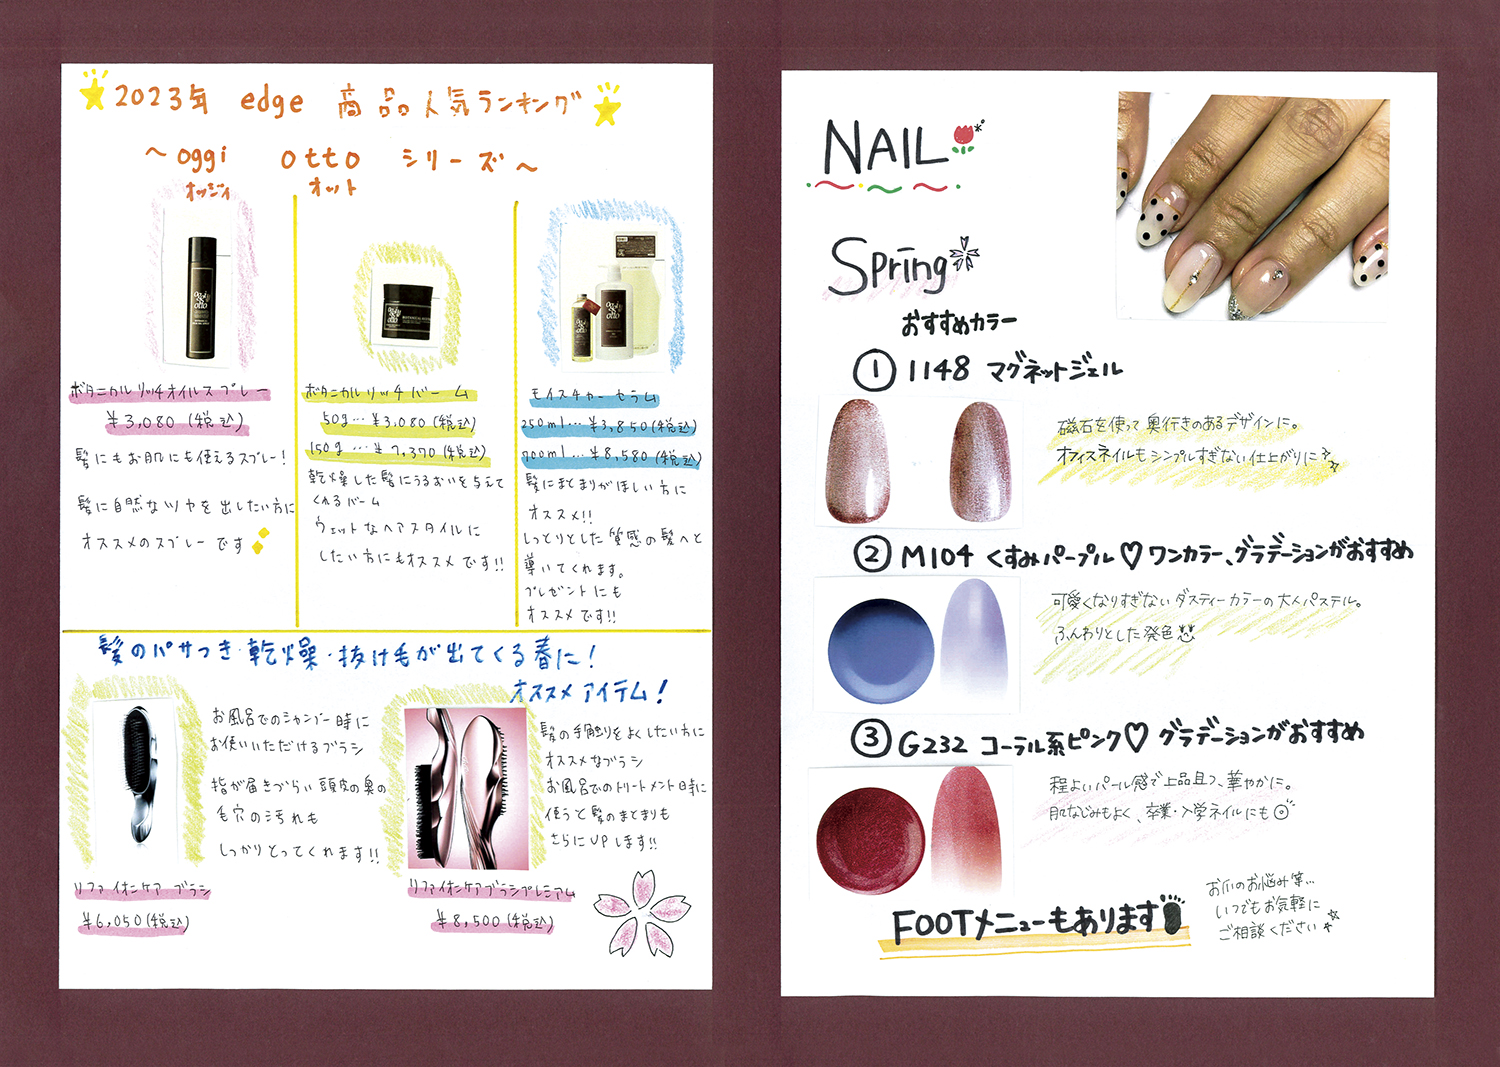 2023年 edge 商品人気ランキング
～oggi otto シリーズ～
オッジィ オット
oggi
otto
ボタニカルリッチオイルスプレー
¥3,080 (税込)
髪にもお肌にも使えるスプレー!
髪に自然なツヤを出したい方に
オススメのスプレーです
oggi
otto
ボタニカルリッチバーム
50g…¥3,080 (税込)
150g…¥7,370 (税込)
乾燥した髪にうるおいを与えて
くれるバーム
ウェットなヘアスタイルに
したい方にもオススメです!!
oggi
otto
モイスチャーセラム
250ml…¥3,850(税込)
700ml…¥8,580(税込)
髪にまとまりがほしい方に
オススメ!!
しっとりとした質感の髪へと
導いてくれます。
プレゼントにも
オススメです!!
髪のパサつき・乾燥・抜け毛が出てくる春に!
オススメアイテム!
お風呂でのシャンプー時に
お使いいただけるブラシ
指が届きづらい頭皮の奥の
毛穴の汚れも
しっかりとってくれます!!
リファイオンケア ブラシ
¥6,050(税込)
髪の手触りをよくしたい方に
オススメなブラシ
お風呂でのトリートメント時に
使うと髪のまとまりも
さらにUPします!!
リファイオンケアブラシプレミアム
¥8,500(税込)
NAIL
Spring
おすすめカラー
① 1148 マグネットジェル
磁石を使って奥行きのあるデザインに。
オフィスネイルもシンプルすぎない仕上がりに
② M104 くすみパープル♡ワンカラー、グラデーションがおすすめ
可愛くなりすぎないダスティーカラーの大人パステル。
ふんわりとした発色
③ G232 コーラル系ピンク♡ グラデーションがおすすめ
程よいパール感で上品且つ、華やかに。
肌なじみもよく、卒業・入学ネイルにも
FOOTメニューもあります
お爪のお悩み等…
いつでもお気軽に
ご相談ください